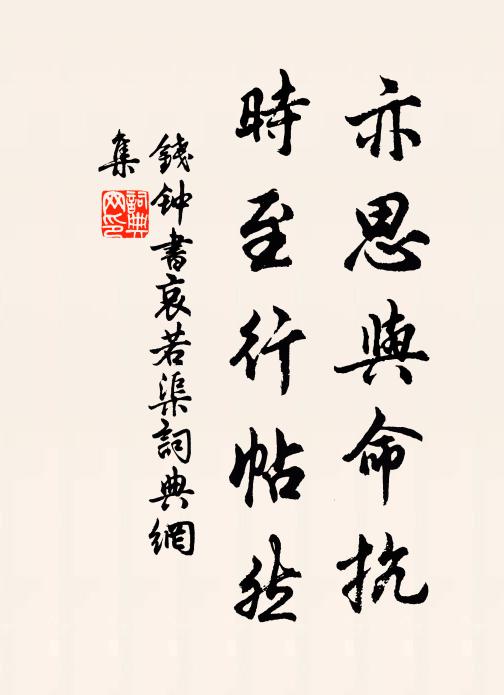 亦思與命抗
時至行帖然
錢钟書哀若渠詞典網
集
詞典网印